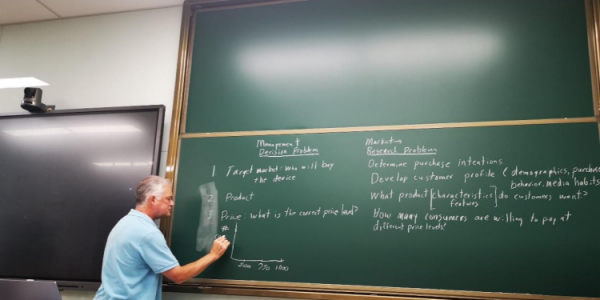 Management
Decision Problem
Marketing
Research Problem
1 Target market: who will buy
the device
Determine purchase intentions
Develop customer profile (demographics, purchase
behavior, media habits
2 Product
What product [characteristics] do customers want?
features
3 Price: what is the correct price level?
How many consumers are willing to pay at
different price levels?
#
500 750 1000